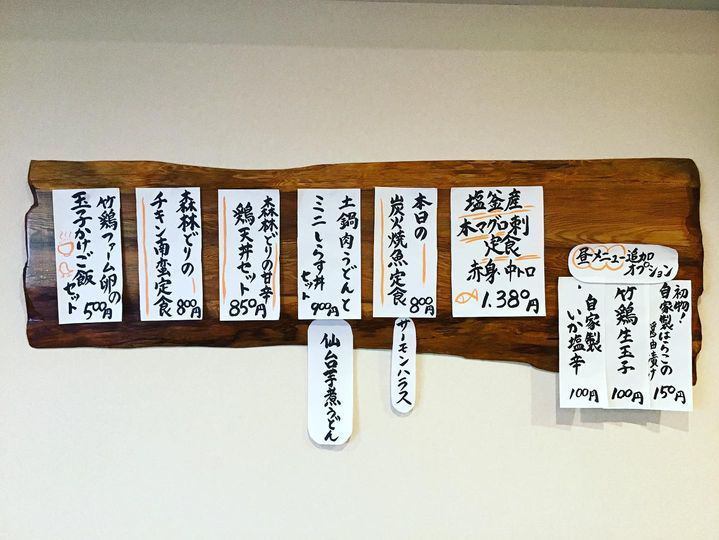 塩釜産
本マグロ刺
定食
赤身・中トロ
1.380円
本日の
炭火焼魚定食
800円
サーモンハラス
土鍋肉うどんと
ミニしらす丼
セット
900円
仙台芋煮うどん
森林どりの甘辛
鶏天丼セット
850円
森林どりの
チキン南蛮定食
800円
竹鶏ファーム卵の
玉子かけご飯
セット
500円
昼メニュー追加
オプション
初物!
自家製はらこの
醤油漬け
150円
竹鶏生玉子
100円
・自家製
いか塩辛
100円